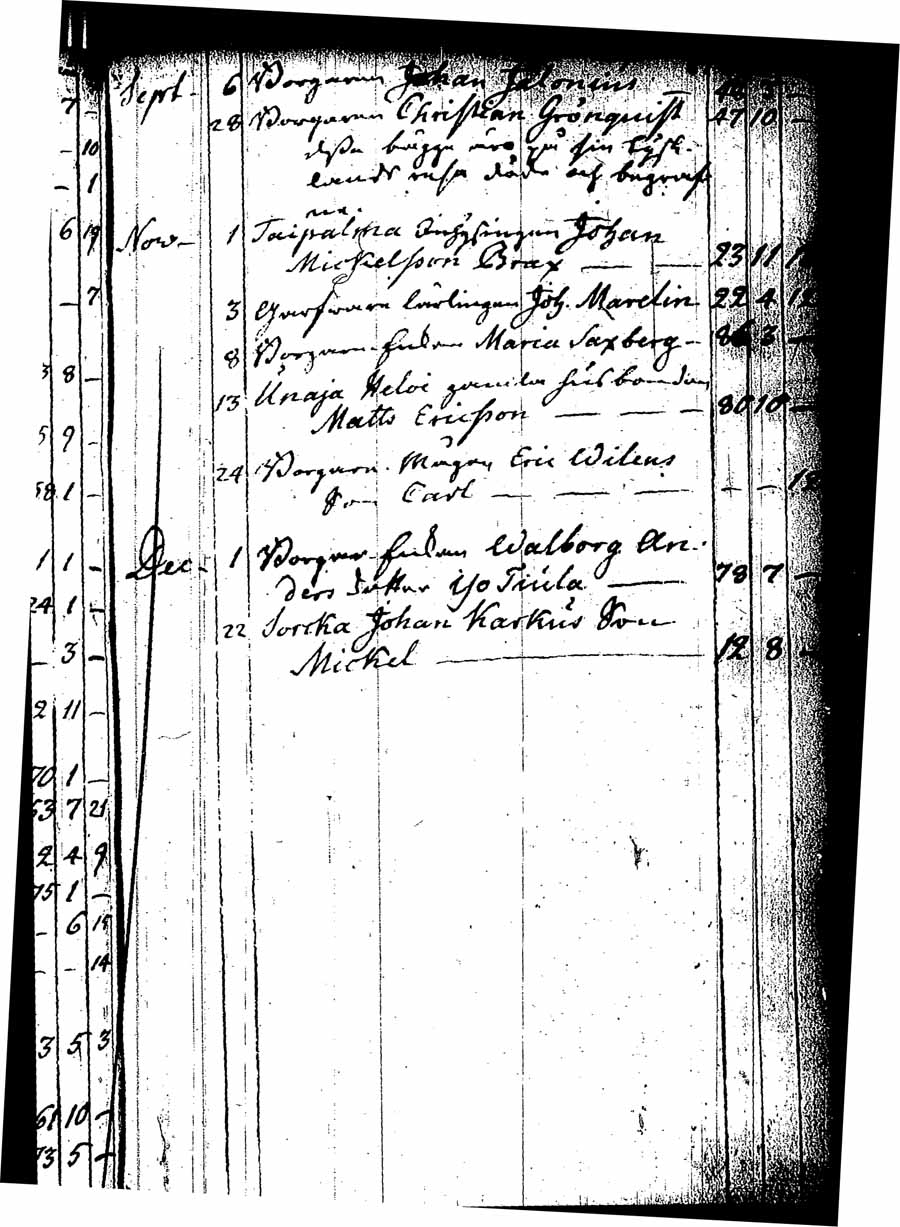 7 -
- 10
- 1
6 19
- 7
3 8 -
5 9 -
58 1 -
1 1 -
24 1 -
- 3 -
2 11 -
70 1 -
53 7 21
2 4 9
75 1 -
- 6 15
- - 14
3 5 3
61 10 -
73 5 -
Sept. 6 Borgaren Johan Jelonius - 3 -
28 Borgaren Christian Grönquist 47 10 -
dessa bägge äro på sin tysk-
lands resa döde och begraf
ne.
Nov. 1 Taipalma Johan
Mickelsson Brax — — 23 11
3 Garfvare lärlingen Joh. Marelin 22 4 12
8 Borgare Enkan Maria Saxberg - 86 3 -
13 Unaja Heloi gamla husbonden
Matts Ericsson — — — 80 10 -
24 Borgare Mågen Eric Wilens
Son Carl — — — - -
Dec. 1 Borgar Enkan Walborg An-
ders dotter Tiula — 78 7 -
22 Sorcka Johan Karkus Son
Mickel — 12 8 -